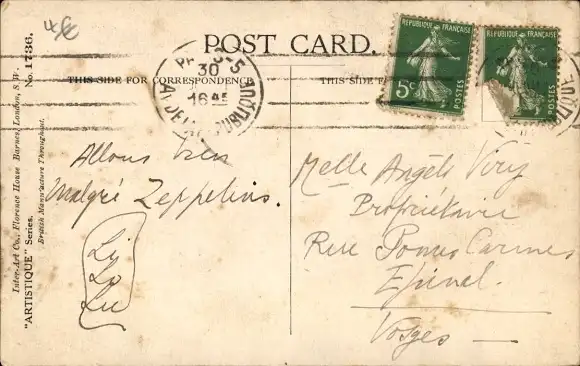 4€
POST CARD.
THIS SIDE FOR CORRESPONDENCE
THIS SIDE
No. 1736.
Inter-Art Co., Florence House Barnes, London, S.W.
"ARTISTIQUE" Series.
British Manufacture Throughout.
30
16 45
REPUBLIQUE FRANÇAISE
5c
POSTES
REPUBLIQUE FRANÇAISE
POSTES
Allons bien
malgré Zeppelins.
Li
Lo
Lu
Melle Angèle Viry
Propriétaire
Rue
Epinal.
Vosges